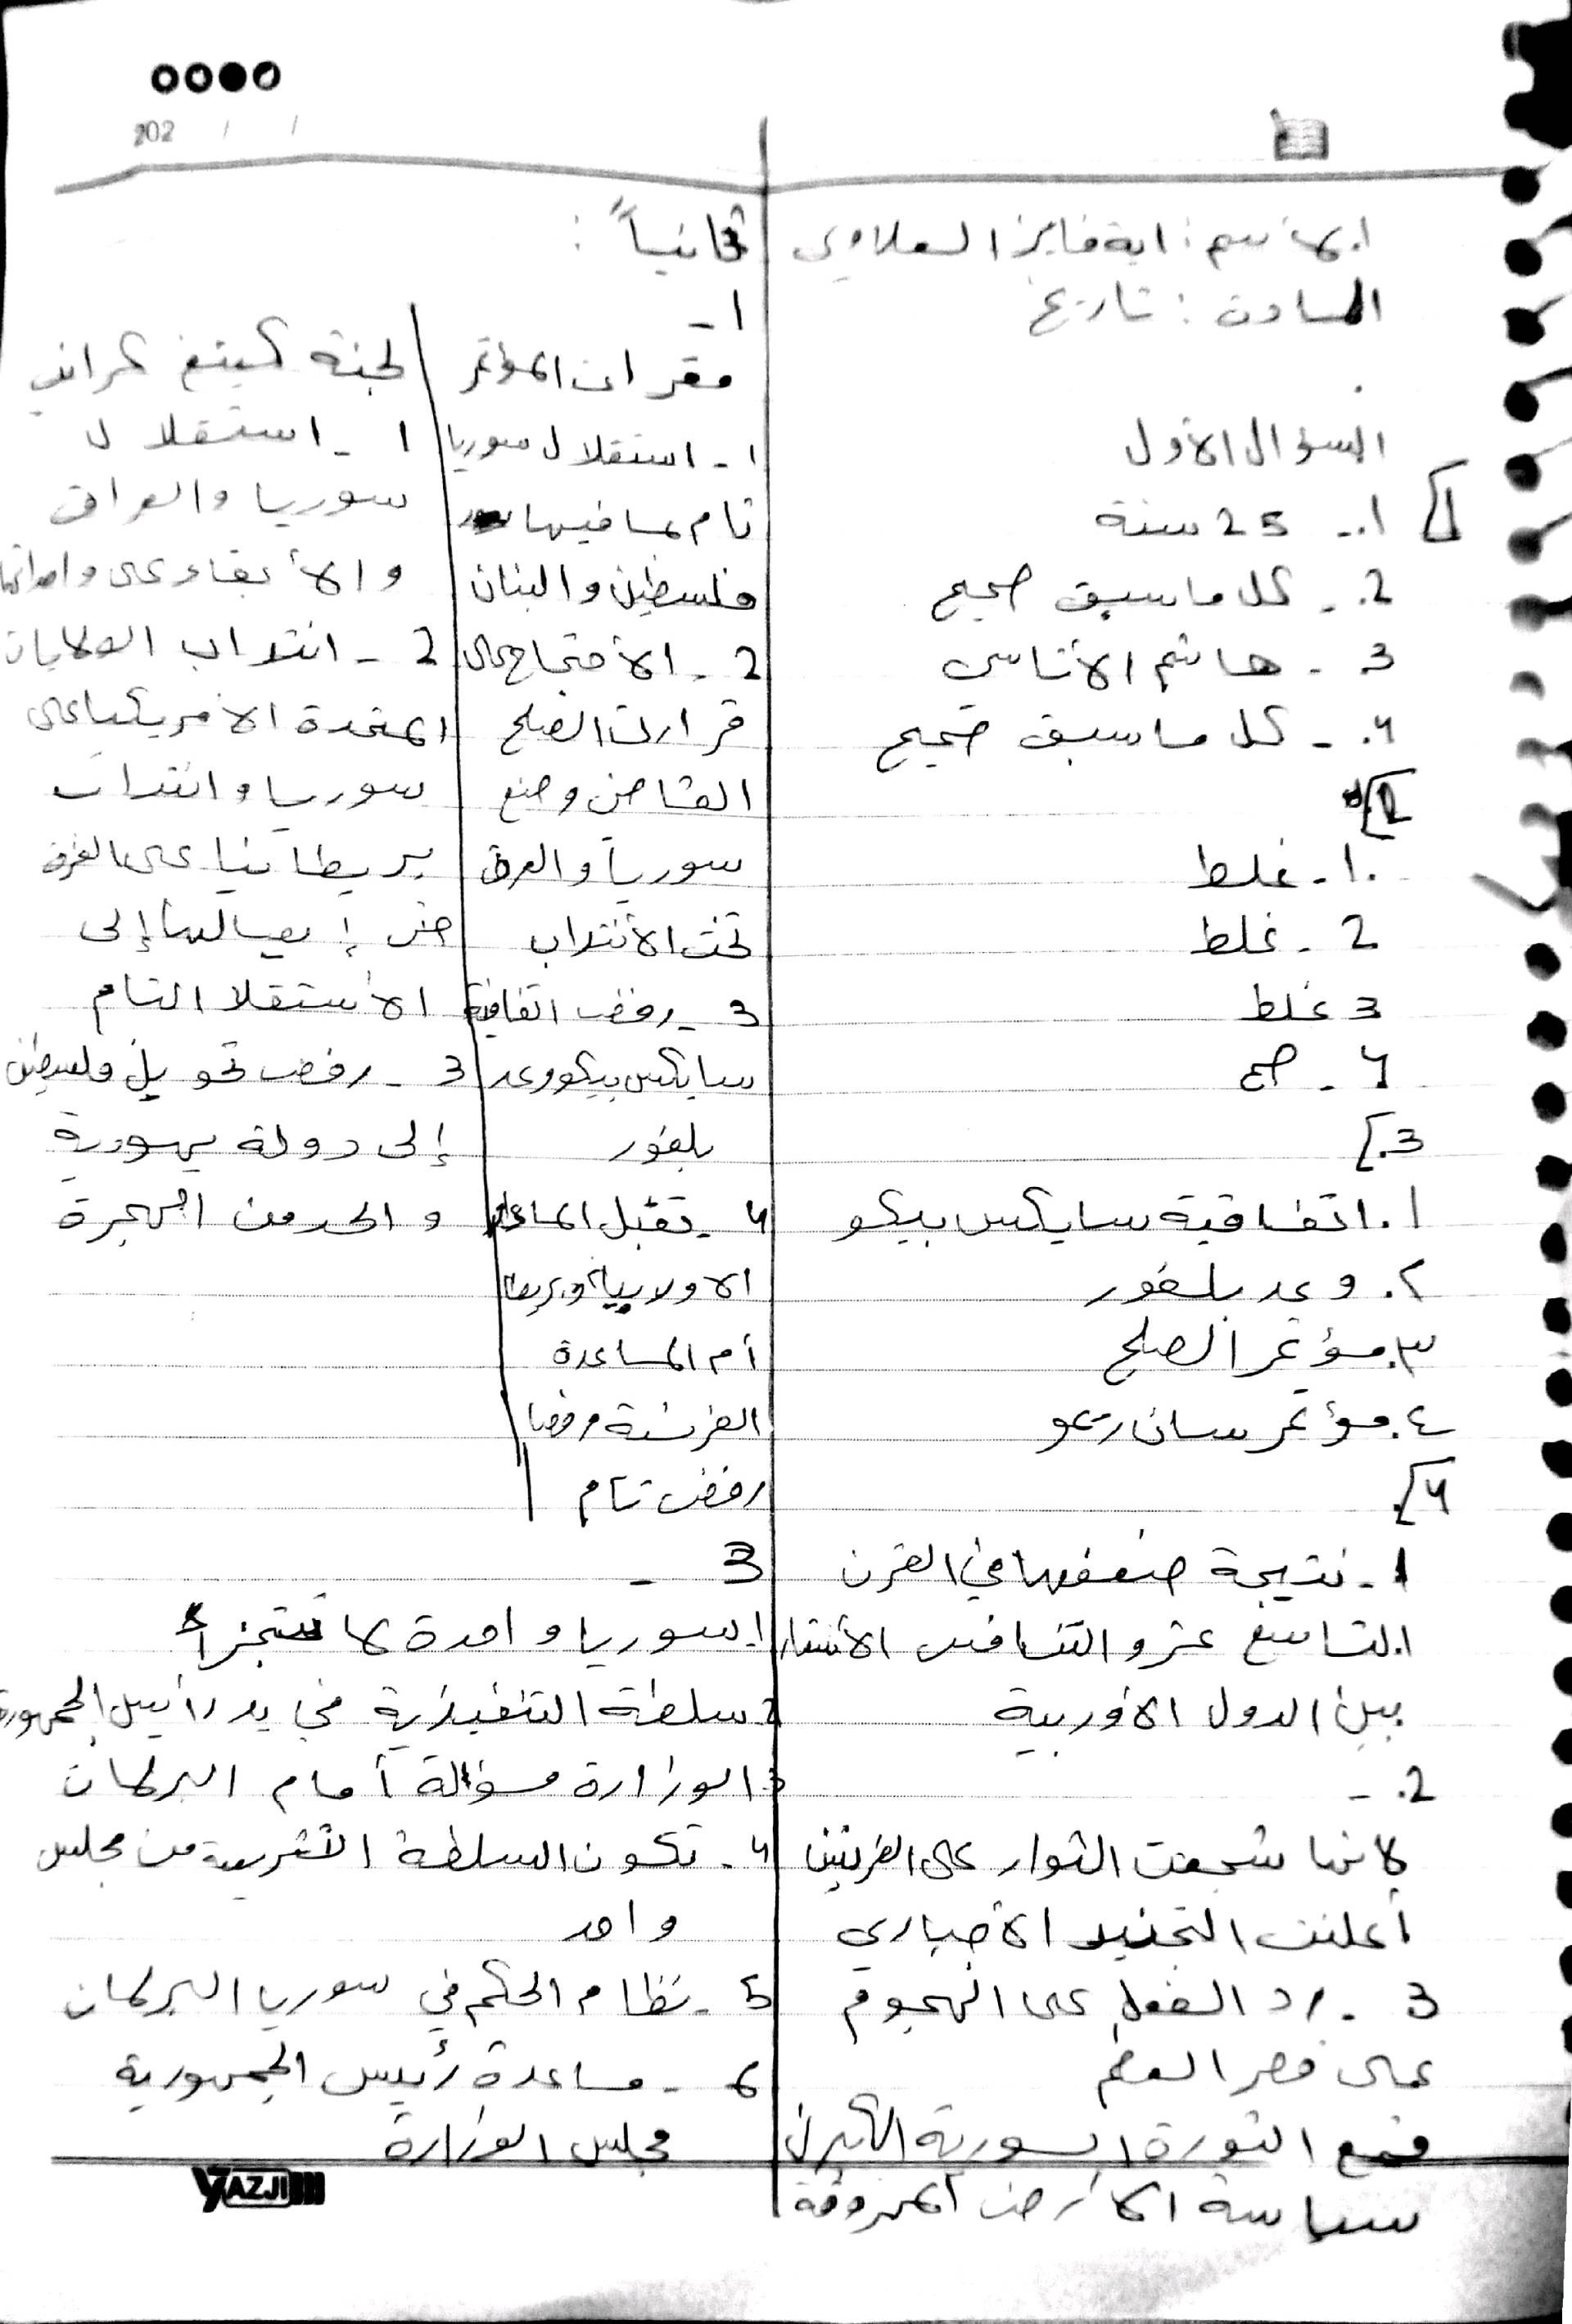 202 / /
الاسم: اية فايز العلاوي
المادة: تاريخ
السؤال الأول
1]
1. - 25 سنة
2. - كل ما سبق صحيح
3 - هاشم الأتاسي
4. - كل ما سبق صحيح
2]
1. - غلط
2 - غلط
3 غلط
4 - صح
3]
1. اتفاقية سايكس بيكو
2. وعد بلفور
٣. مؤتمر الصلح
٤. مؤتمر سان ريمو
4]
1 - نتيجة ضعفها في القرن
التاسع عشر والتنافس الأستعمار
بين الدول الاوربية
2. -
لانها شجعت الثوار على الفرنسيين
أعلنت التجنيد الأجباري
3 - رد الفعل على الهجوم
على قصر العظم
قمع الثورة السورية الكبرى
سياسة الارض المحروقة
ثانياً:
1 -
مقررات المؤتمر
1 - استقلال سوريا
تام بما فيها
فلسطين والبنان
2 - الأحتجاج على
قرارت الصلح
القاضي وضع
سوريا والعرق
تحت الأنتداب
3 - رفض اتفاقية
سايكس بيكو وعد
بلفور
4 - تقبل المساعدة
أم المساعدة
الفرنسية مرفوضا
رفض تام
لجنة كينغ كراين
1 - استقلال
سوريا والعراق
والأبقاء على
2 - انتداب الولايات
المتحدة الأمريكيا على
سوريا وانتداب
بريطانيا على العرق
حتى إيصالها إلى
الأستقلا التام
3 - رفض تحويل فلسطين
إلى دولة يهودية
والحد من الهجرة
3 -
1. سوريا واحدة لا تتجزأ
2 سلطة التنفيذية في يد رأييس الجمهورية
3 الوزارة مسؤالة أمام البرلمان
4 - تكون السلطة التشريعية من مجلس
واحد
5 - نظام الحكم في سوريا البرلمان
6 - مساعدة رئيس الجمهورية
مجلس الوزارة
YAZJI